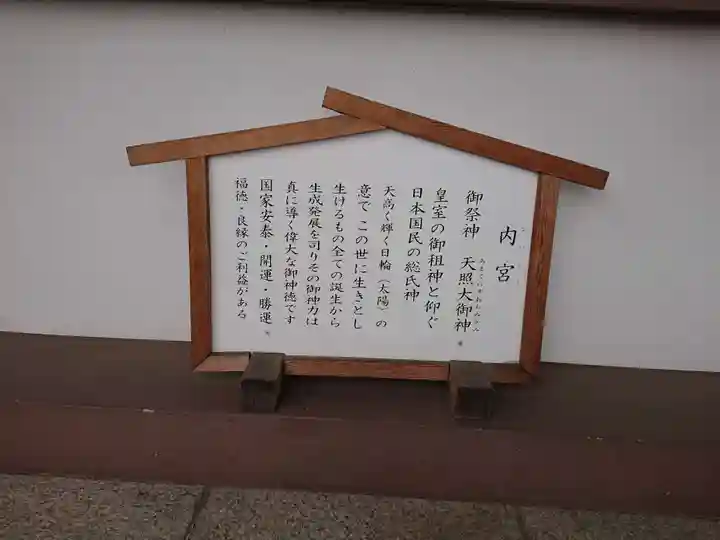 内宮
御祭神 天照大御神
皇室の御祖神と仰ぐ
日本国民の総氏神
天高く輝く日輪（太陽）の
意で この世に生きとし
生けるもの全ての誕生から
生成発展を司りその御神力は
真に導く偉大な御神徳です
国家安泰・開運・勝運
福徳・良縁のご利益がある